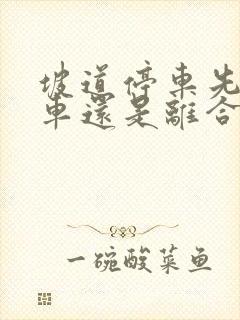 坡道停車先
車還是離合
一碗酸菜鱼